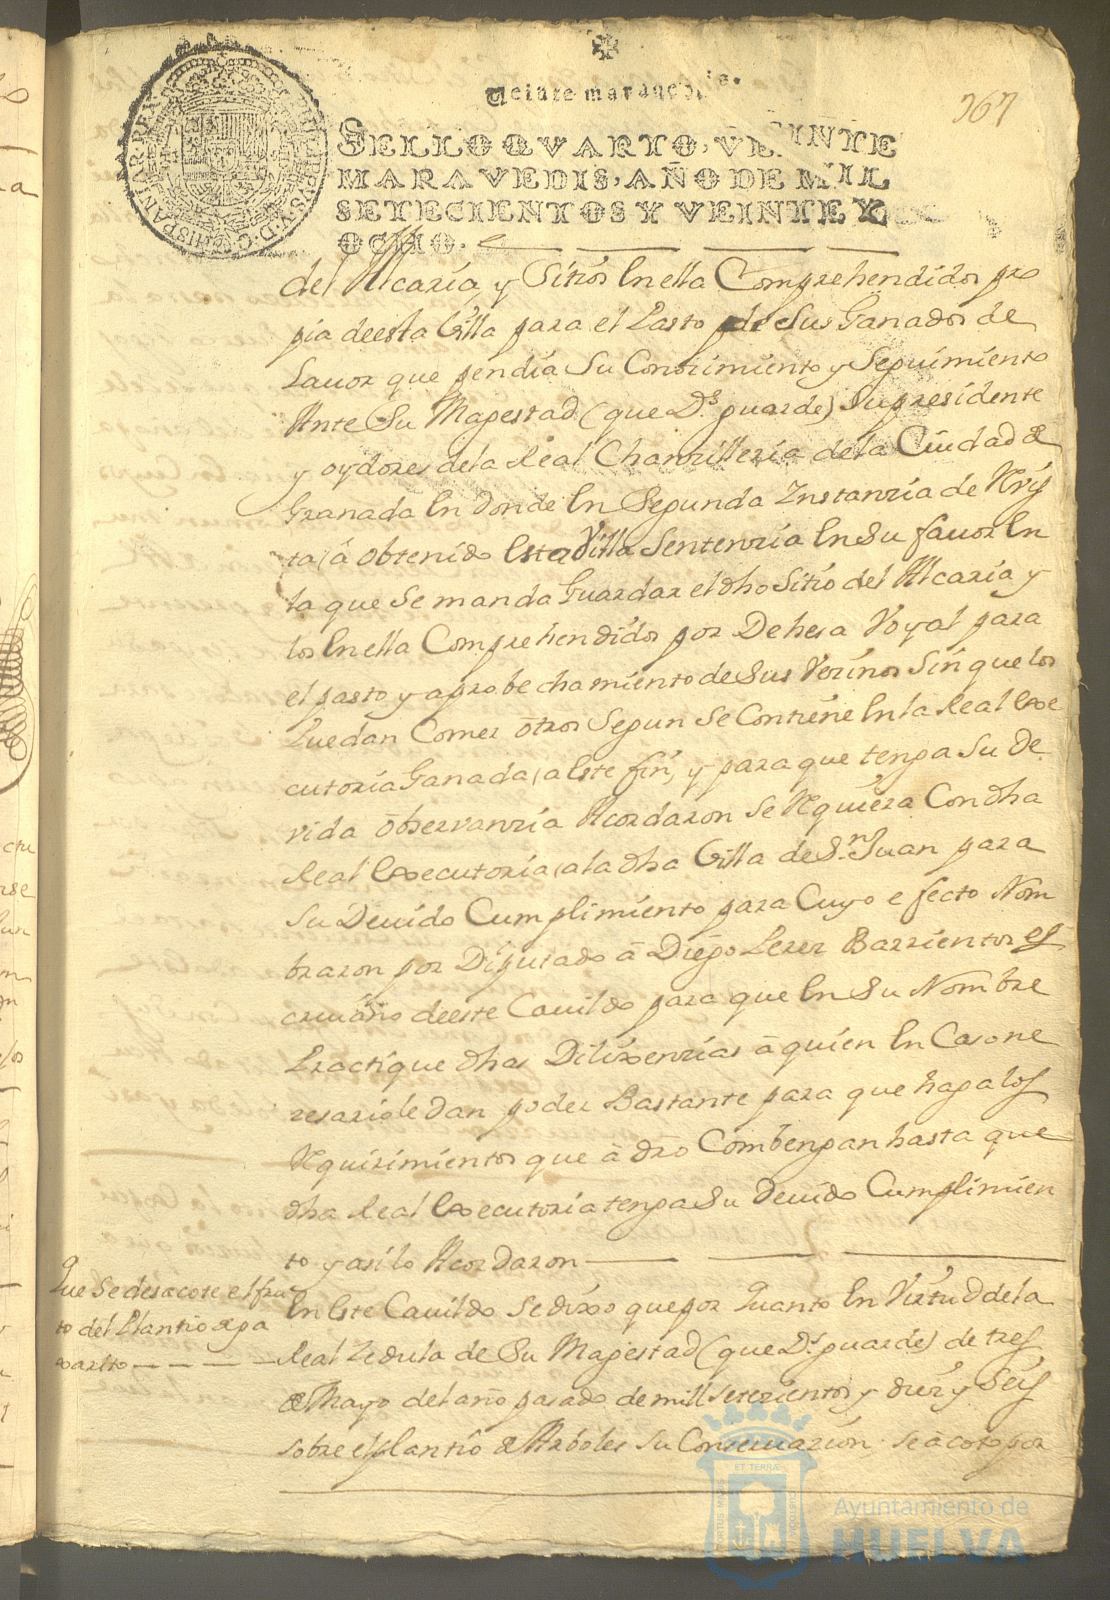 367
Veinte maravedis.
SELLO QVARTO, VEINTE
MARAVEDIS, AÑO DE MIL
SETECIENTOS Y VEINTE Y
OCHO.
del Alcaria, y Sitios En ella Comprehendidos pro
pia de esta Villa para el Pasto de Sus Ganados de
Lauor que pendia Su Conozimiento y Seguimiento
Ante Su Magestad (que Ds. guarde) Su presidente
y oydores de la Real Chanzilleria de la Ciudad de
Granada En donde En Segunda Instanzia de Reuis
ta, á obtenido Esta Villa Sentenzia En Su fauor En
la que Se manda Guardar el dho Sitio del Alcaria y
los En ella Comprehendidos por Dehesa Voyal para
el pasto y aprobechamiento de Sus Vezinos Sin que los
Puedan Comer otros Segun Se Contiene En la Real Exe
cutoria Ganada, a Este fin, y para que tenga Su De
vida observanzia Acordaron Se Requiera Con dha
Real Executoria, a la dha Villa de Sn. Juan para
Su Deuido Cumplimiento para Cuyo efecto Nom
braron por Diputado á Diego Perez Barrientos es
criuano de este Cauildo para que En Su Nombre
Practique dhas Dilixenzias á quien En Caso ne
zesario le dan poder Bastante para que haga los
Requirimientos que á dro Combengan hasta que
dha Real Executoria tenga Su Deuido Cumplimien
to y asi lo Acordaron
Que Se desacote el fru
to del Plantio de pa
xarito
En Este Cauildo Se dixo que por Quanto En Virtud de la
Real Zedula de Su Magestad (que Ds. guarde) de tres
de Mayo del año pasado de mill setezientos y diez y Seis
sobre el plantio de Arboles Su Conseruazion se acoto por
Ayuntamiento de
HUELVA